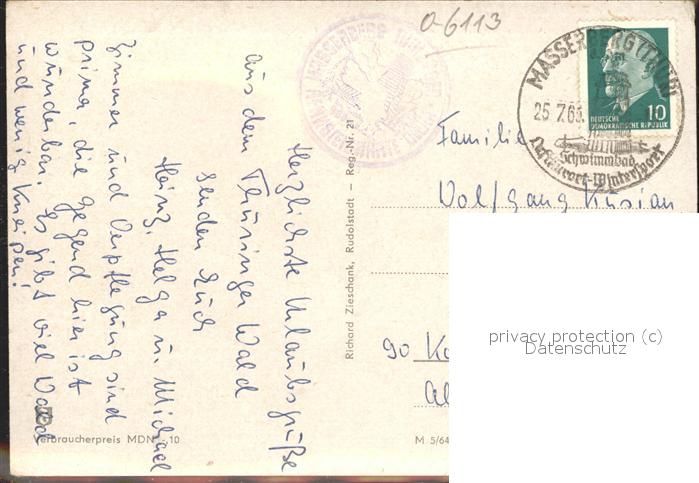 o-6113
MASSERBERG (THÜR)
25.7.65
Schwimmbad
Luftkurort-Wintersport
DEUTSCHE
DEMOKRATISCHE REPUBLIK
10
Herzlichste Urlaubsgrüße
aus dem Thüringer Wald
senden Euch
Heinz, Helga u. Michael
Zimmer und Verpflegung sind
prima, die Gegend hier ist
wunderbar. Es gibt viel Wald
und wenig Kneipen!
Richard Zieschank, Rudolstadt — Reg.-Nr. 21
Familie
Wolfgang Kusian
90 Ka
Verbraucherpreis MDN -,10
M 5/64
privacy protection (c)
Datenschutz